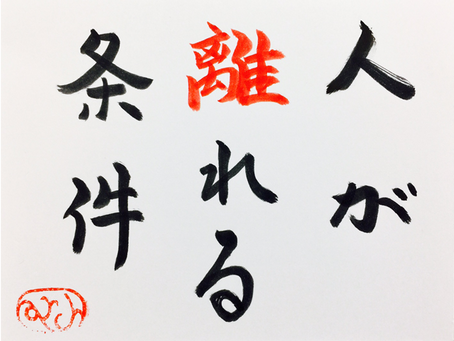 人が
離れる
条件